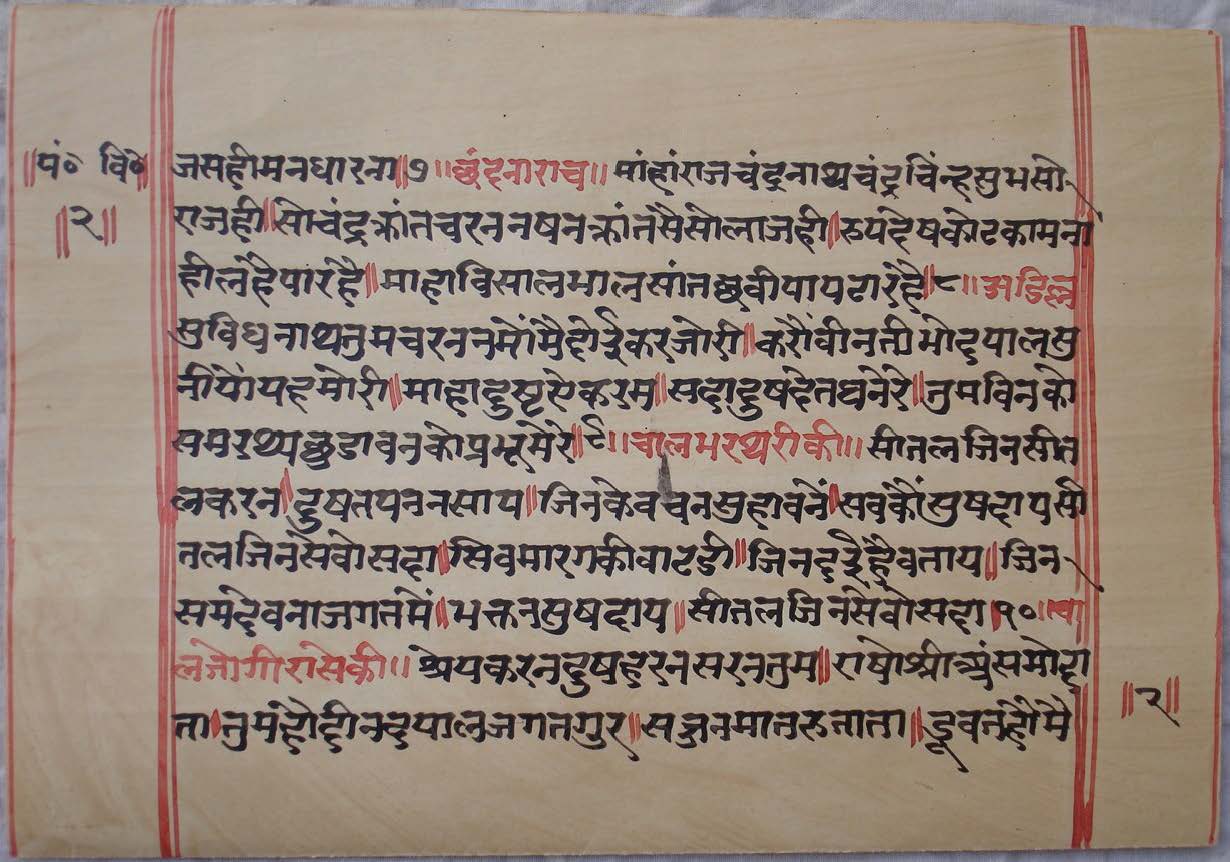 ॥पं० वि०॥
॥२॥
जसहीमनधारना॥७॥छंदनाराच॥ माहांराजचंद्रनाथचंद्रचिंन्हसुभसो
राजही॥सोचंद्रक्रांतचरननषनक्रांतसैसोलाजही॥रुपदेषकोटकामना
हीलहैपारहै॥माहाविसालभालसांतछवीपापटारहै॥८॥अडिल्ल
सुविधनाथतुमचरननमोंमैदोईकरजोरी॥करौंवीनतीभोदयालसु
नीयोंयहमोरी॥माहादुष्टएेकरम॥सदादुषदेतघनेरे॥तुमविनको
समरथ्थछुडावनकोप्रभूमेरे॥९॥चालभरथरीकी॥ सीतलजिनसीत
लकरन॥दुषतपननसाय॥जिनकेवचनसुहावनें॥सवकौंसुषदायसी
तलजिनसेवोसदा॥सिवमारगकीवाटडी॥जिनदईहैवताय॥जिन
समदेवनाजगतमें॥भक्तनसुषदाय॥सीतलजिनसेवोसदा॥१०॥चा
लजोगीरासेकी॥ श्रेयकरनदुषहरनसरनतुम॥राषोश्रीश्र्यंसमोदा
ता॥तुमहोदीनदयालजगतगुर॥सज्जनमातरुताता॥डूवतहौंमै
॥२॥